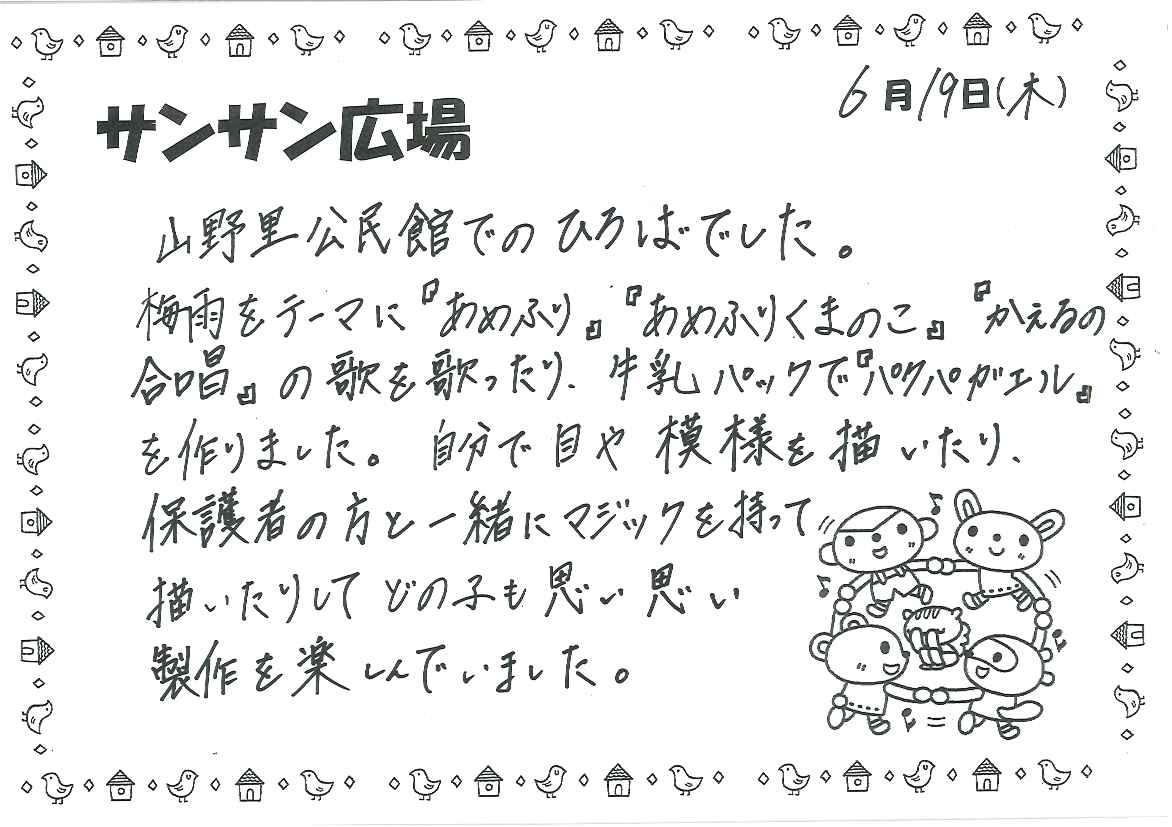 6月19日(木)
サンサン広場
山野里公民館でのひろばでした。
梅雨をテーマに『あめふり』『あめふりくまのこ』『かえるの
合唱』の歌を歌ったり、牛乳パックで『パクパクガエル』
を作りました。自分で目や模様を描いたり、
保護者の方と一緒にマジックを持って
描いたりしてどの子も思い思い
製作を楽しんでいました。